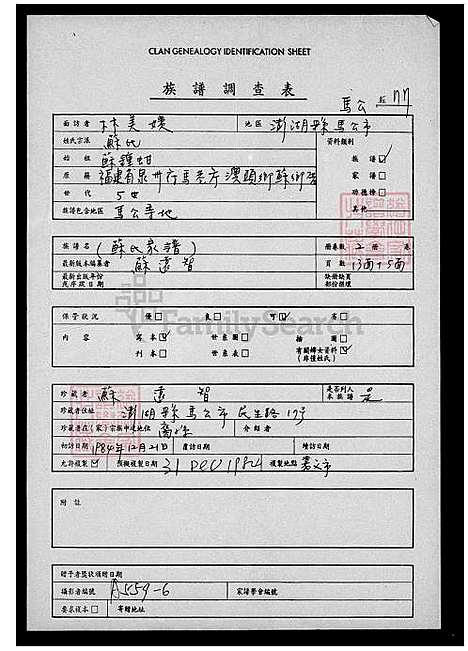 CLAN GENEALOGY IDENTIFICATION SHEET
族 譜 調 查 表
馬公 77
面訪者 林美嬡 地區 澎湖縣馬公市
姓氏宗派 蘇氏 資料類別
始祖 蘇鐘 族譜
原籍 福建省泉州府馬巷庄澳頭鄉蘇鄉 家譜
世代 5世 功德榜
族譜包含地區 馬公等地 其他
族譜名 (蘇氏家譜) 冊卷數 2 冊 卷
最新版本編纂者 蘇遠智 頁數 13面+5面
最新出版年份或序跋日期 缺冊缺頁部份損壞
保管狀況 優 良 可 劣
內容 寫本 世系圖 插圖
刊本 世系表 有關婦女資料(非僅姓氏)
珍藏者 蘇遠智 是否列入本族譜 是
珍藏者住址 澎湖縣馬公市民生路17号
珍藏者在(家)宗族中之地位 介紹者
初訪日期 1984年12月21日 覆訪日期 續訪日期
允許複製 預擬複製日期 31 DEC 1984 複製地點
附註
贈予者獎狀頒贈日期
攝影者編號 A559-6 家譜學會編號
要求複本 寄贈地址
FamilySearch